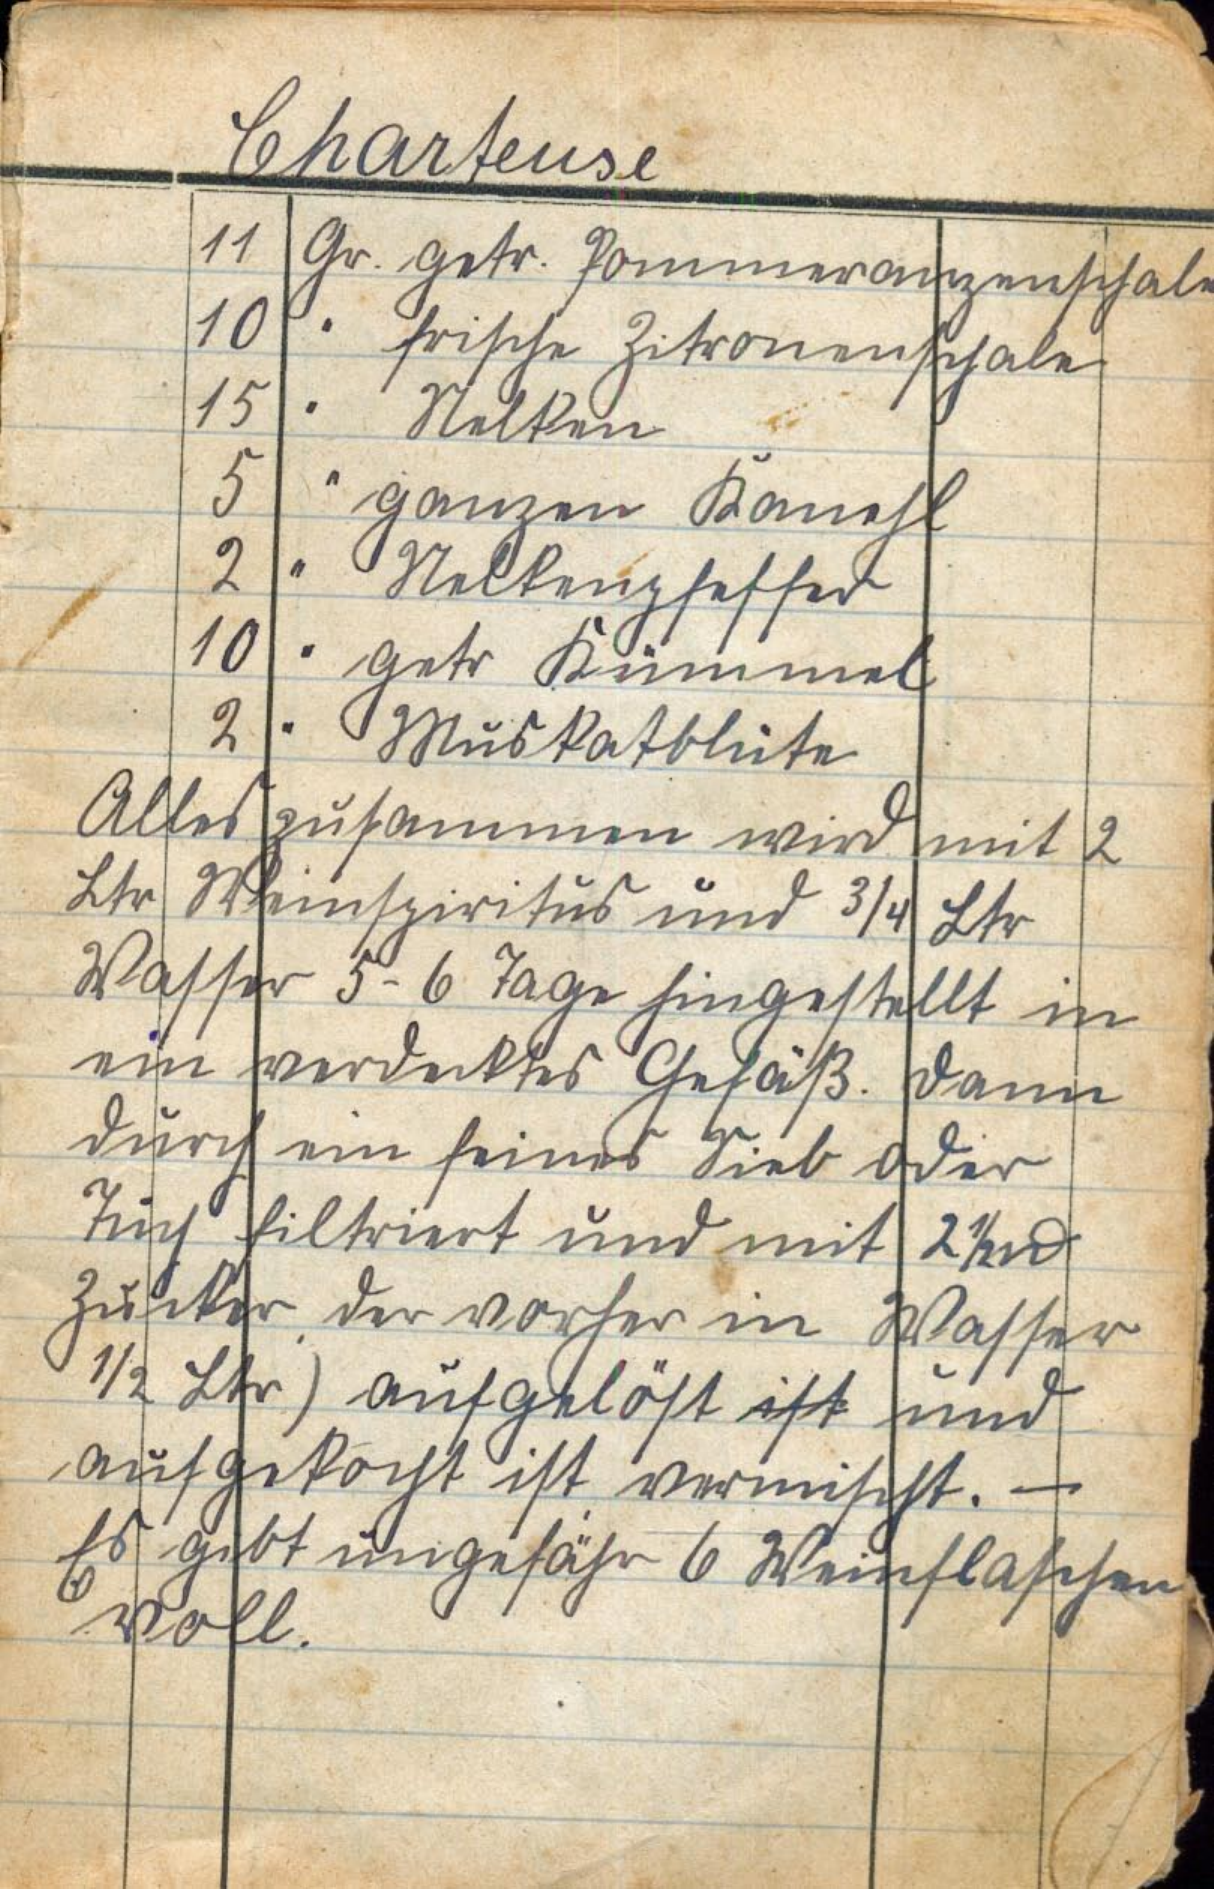 Charteuse
11 Gr. getr. Pommeranzenschale
10 " frische Zitronenschale
15 " Nelken
5 " ganzen Kanehl
2 " Nelkenpfeffer
10 " getr Kümmel
2 " Muskatblüte
Alles zusammen wird mit 2
Ltr Weinspiritus und 3/4 Ltr
Wasser 5-6 Tage hingestellt in
ein verdecktes Gefäß. Dann
durch ein feines Sieb oder
Tuch filtriert und mit 2 1/2
Zucker der vorher in Wasser
1/2 Ltr) aufgelöst ist und
aufgekocht ist vermischt. —
Es gibt ungefähr 6 Weinflaschen
voll.